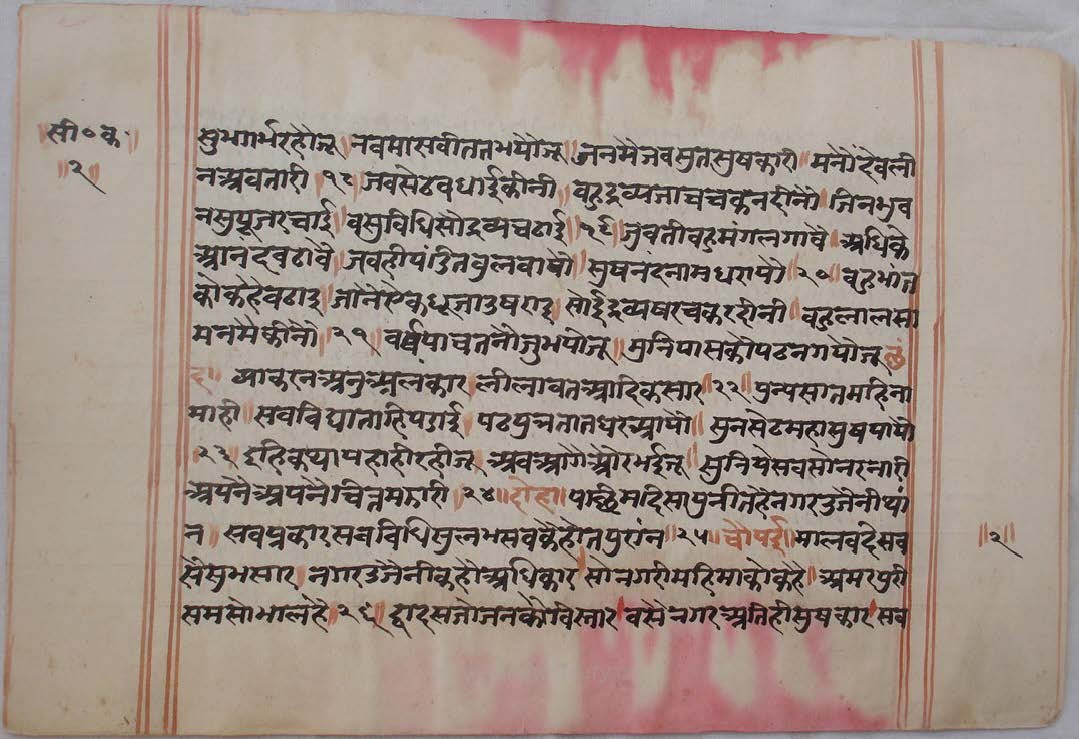 सी॰क॰
॥२॥
सुभगर्भरहौजू ॥ नवमासवीततभयौजू ॥ जनमैजवसुतसुषकारी ॥ मनौदेवली
नअवतारी १८ जवसेठवधाईकीनी ॥ वहुद्रव्यजाचचकनदीनौ ॥ जिनभुव
नसुपूजरचाई ॥ वसुविधिसौद्रव्यचढाई ॥ १९ जुवतीवहुमंगलगावै ॥ अधिकै
आनंदवढावै ॥ जवहीपंडितवुलवायौ ॥ सुषनंदनामधरायौ ॥ २० वहुभांत
कोकहैवढाइ ॥ जानैऐक धूजाउषराइ ॥ सोईद्रव्यषरचकरदीनी ॥ वहुलालसा
मनमैकीनौ ॥ २१ वर्षपाचतनौजुभयौजू ॥ मुनिपासकौपढनगयौजू ॥ छं
द ॥ व्याकरनअनुअलंकार ॥ लीलावतआदिकसार ॥ २२ ॥ पुन्यसातमहिना
माही ॥ सवविद्याताहिपढाई ॥ पढपुत्रतातघरआयौ ॥ सुनसेठमहासुषपायौ
॥ २३ इहिकथायहाहीरहीजू ॥ अवआगेऔरभईजू ॥ सुनियेसवसोनरनारी ॥
अपनैअपनैचित्तमठारी ॥ २४ ॥ दोहा ॥ पाछीमदिसापुनीतहैनगरउजैनीथां
न ॥ सवप्रकारसवविधिसुलभसवकैहोतपुरांन ॥ २५ ॥ चौपई ॥ मालवदेसव
सेसुभसार ॥ नगरउजैनीकहौअधिकार ॥ सोनगरीमहिमाकोकहै ॥ अमरपुरी
समसोभालहै ॥ २६ ॥ द्वादसजोजनकौविस्तार ॥ वसेनगरअतिहीसुषकार ॥ सव
॥२॥